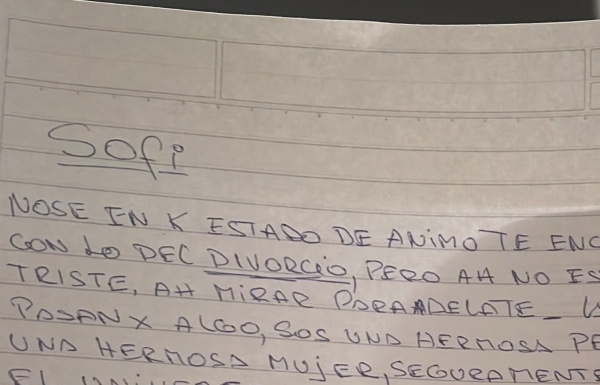 Sofi
NOSE EN K ESTADO DE ANIMO TE ENC
CON LO DEL DIVORCIO, PERO AH NO ES
TRISTE, AH MIRAR PARAADELATE_
PASAN X ALGO, SOS UNA HERMOSA PE
UNA HERMOSA MUJER, SEGURAMENTE
EL